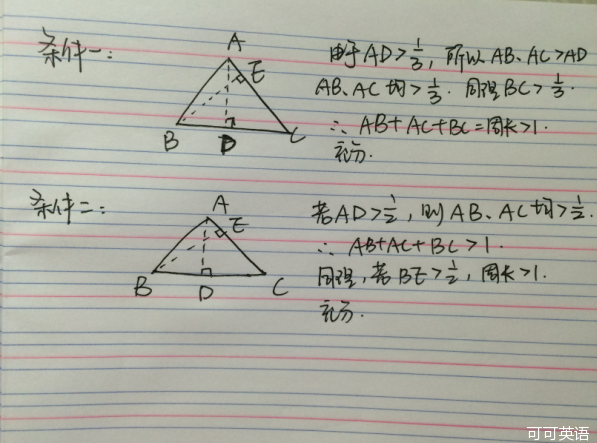 条件一:
A
E
B
D
C
由于AD>1/3, 所以AB、AC>AD
AB、AC均>1/3. 同理BC>1/3.
∴ AB+AC+BC=周长>1.
充分.
条件二:
A
E
B
D
C
若AD>1/2, 则AB、AC均>1/2.
∴ AB+AC+BC>1.
同理, 若BE>1/2, 周长>1.
充分.
可可英语